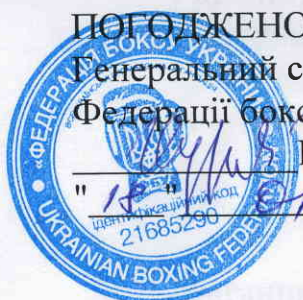 ПОГОДЖЕНО
Генеральний с
Федерації бокс
"18"
«ФЕДЕРАЦІЯ БОКСУ УКРАЇНИ»
ідентифікаційний код
21685290
UKRAINIAN BOXING FEDE